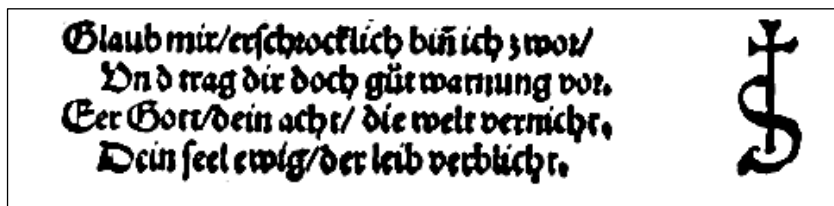 Glaub mir/erschrocklich biñ ich zwor/
Vnd trag dir doch gůt warnung vor.
Eer Gott/dein acht/ die welt vernicht.
Dein seel ewig/der leib verblicht.